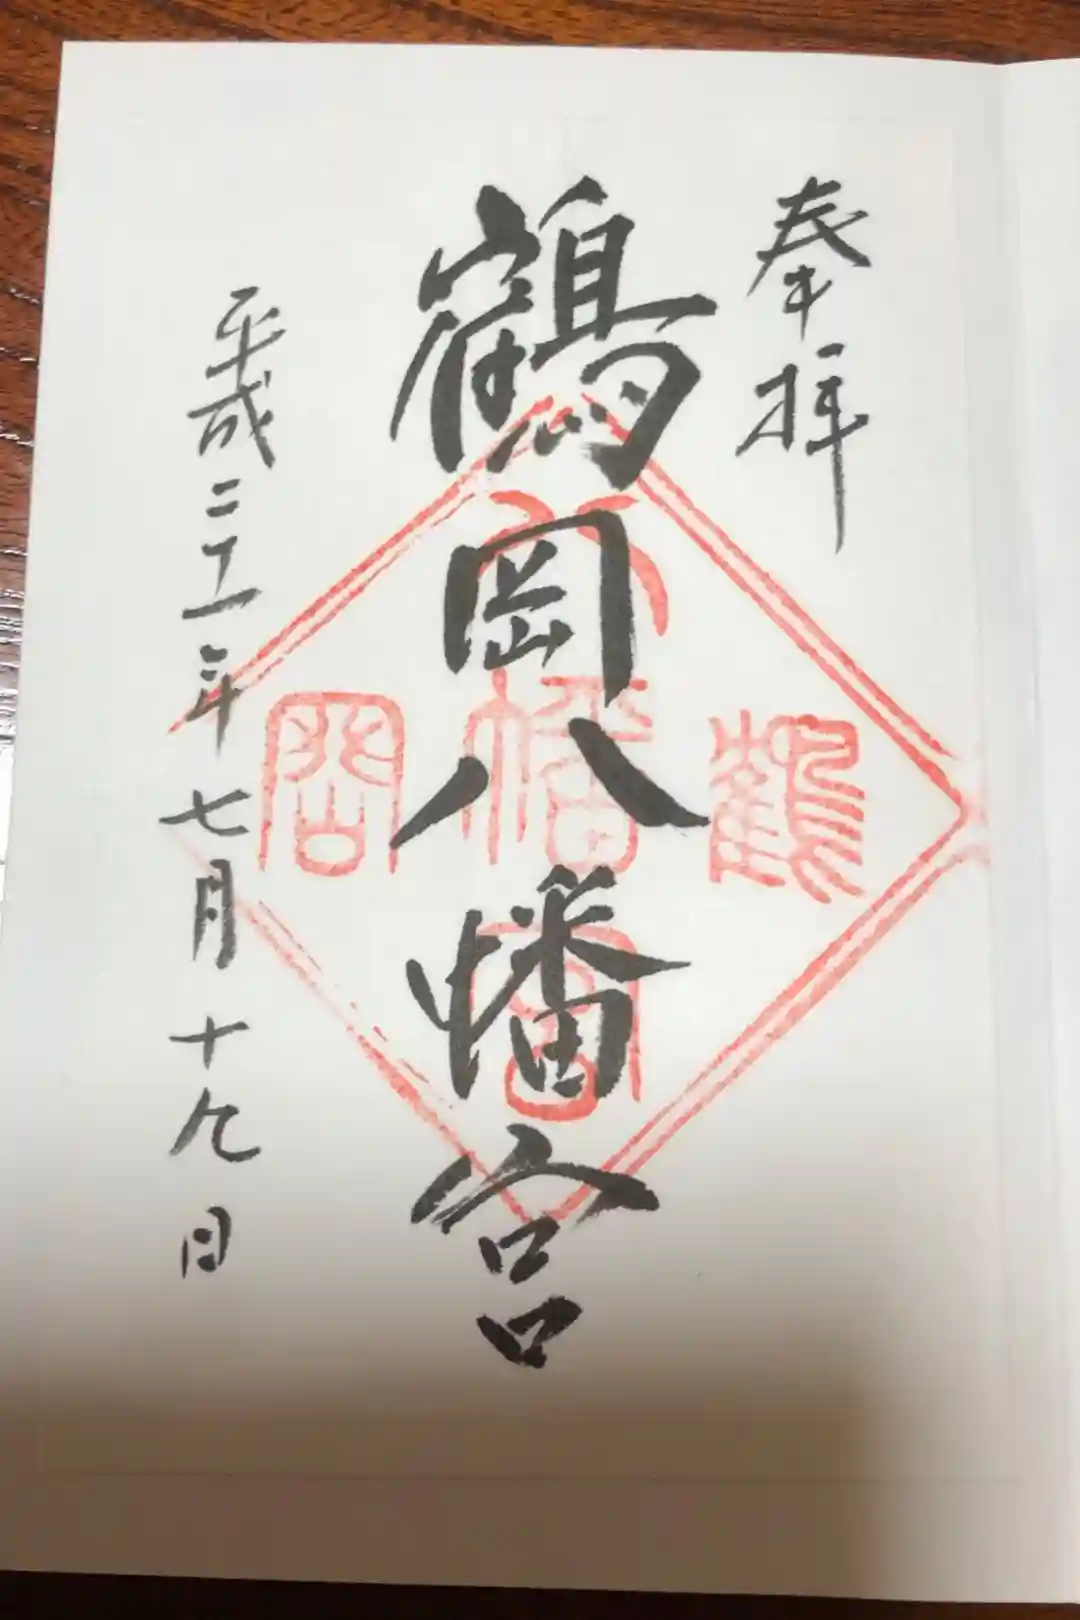 奉拝
鶴岡八幡宮
平成二十一年七月十九日
鶴岡八幡宮